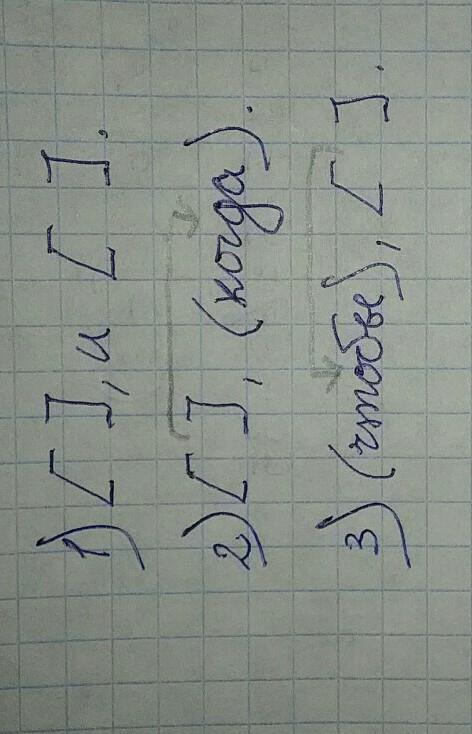 1) [ ], и [ ].
2) [ ], (когда).
3) (чтобы), [ ].